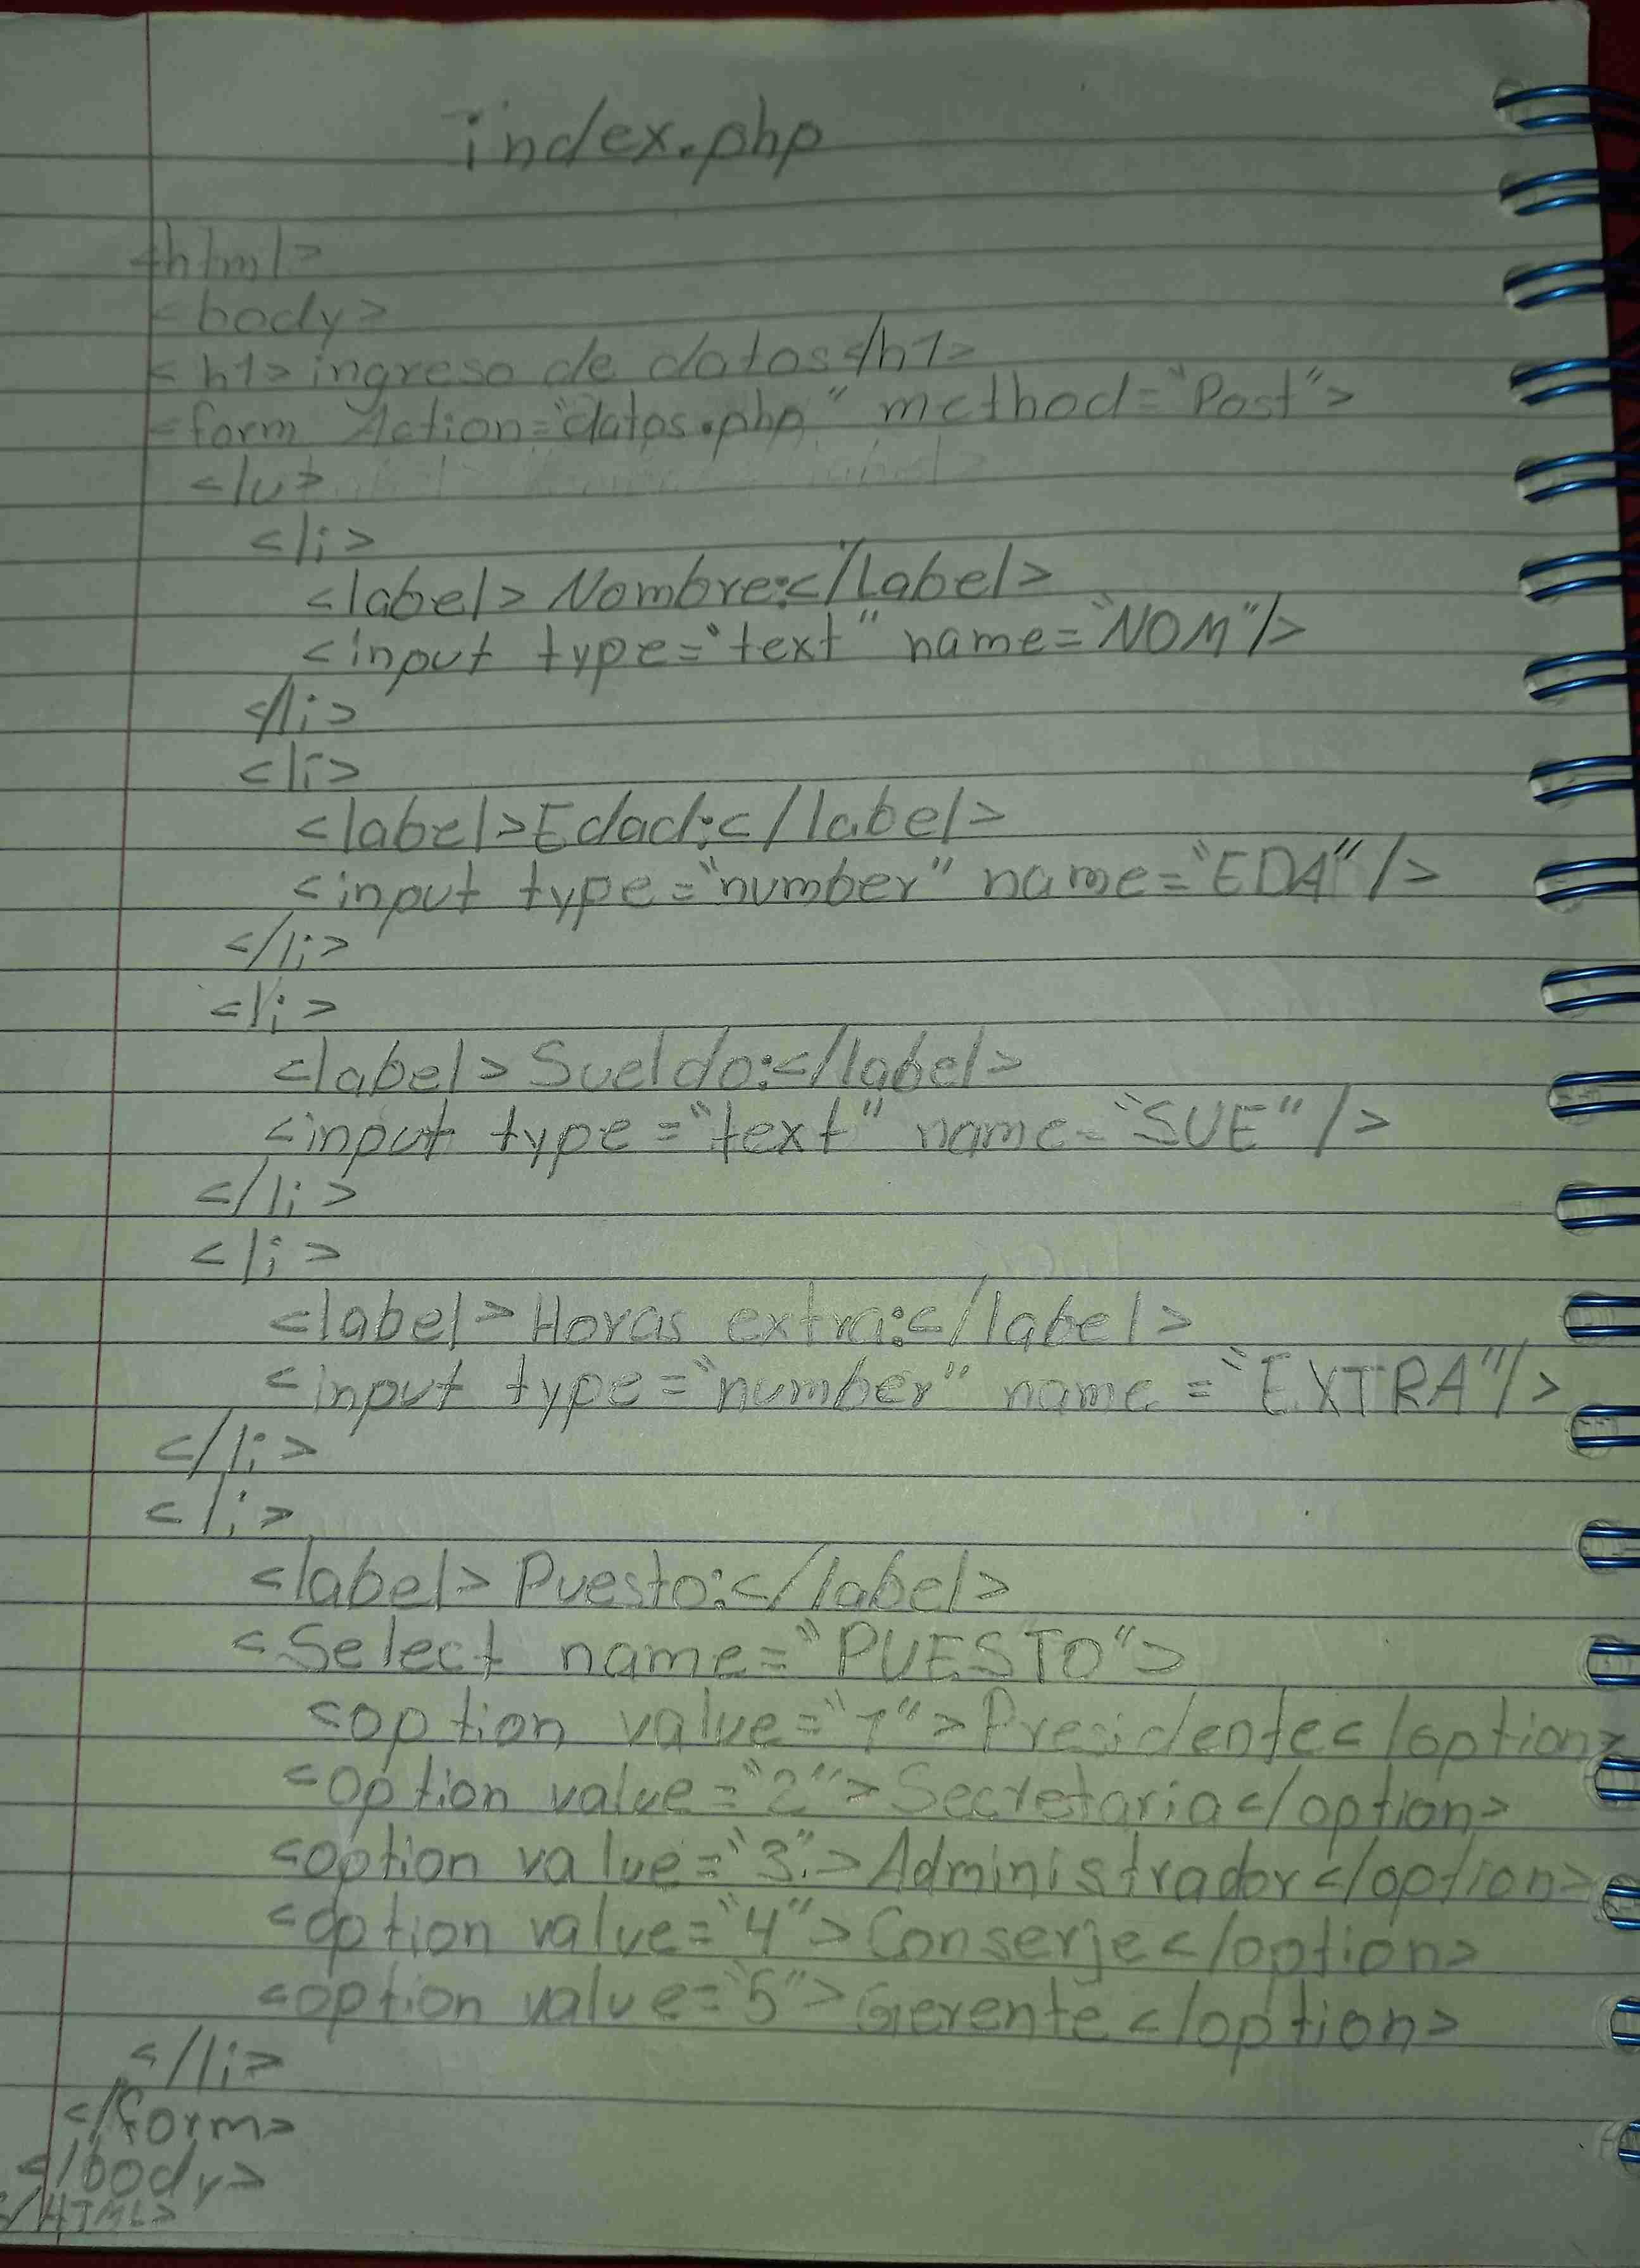 index.php
<html>
<body>
<h1> ingreso de datos </h1>
<form Action="datos.php" method="Post">
<lu>
<li>
<label> Nombre:</Label>
<input type="text" name="NOM"/>
</li>
<li>
<label>Edad:</label>
<input type="number" name="EDA"/>
</li>
<li>
<label> Sueldo:</label>
<input type="text" name="SUE"/>
</li>
<li>
<label> Horas extra:</label>
<input type="number" name="EXTRA"/>
</li>
<li>
<label> Puesto:</label>
<Select name="PUESTO">
<option value="1">Presidente</option>
<option value="2">Secretaria</option>
<option value="3">Administrador</option>
<option value="4">Conserje</option>
<option value="5">Gerente</option>
</li>
</form>
</body>
</HTML>